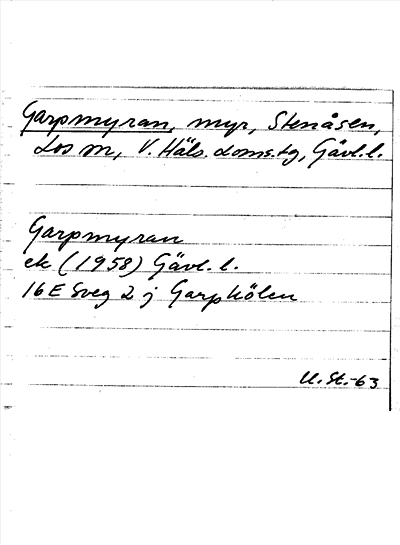 Garpmyran, myr, Stenåsen,
Los sn, V. Häls. doms.tg, Gävl.l.
Garpmyran
ek (1958) Gävl. l.
16 E Sveg 2 j Garpkölen
U. St.-63